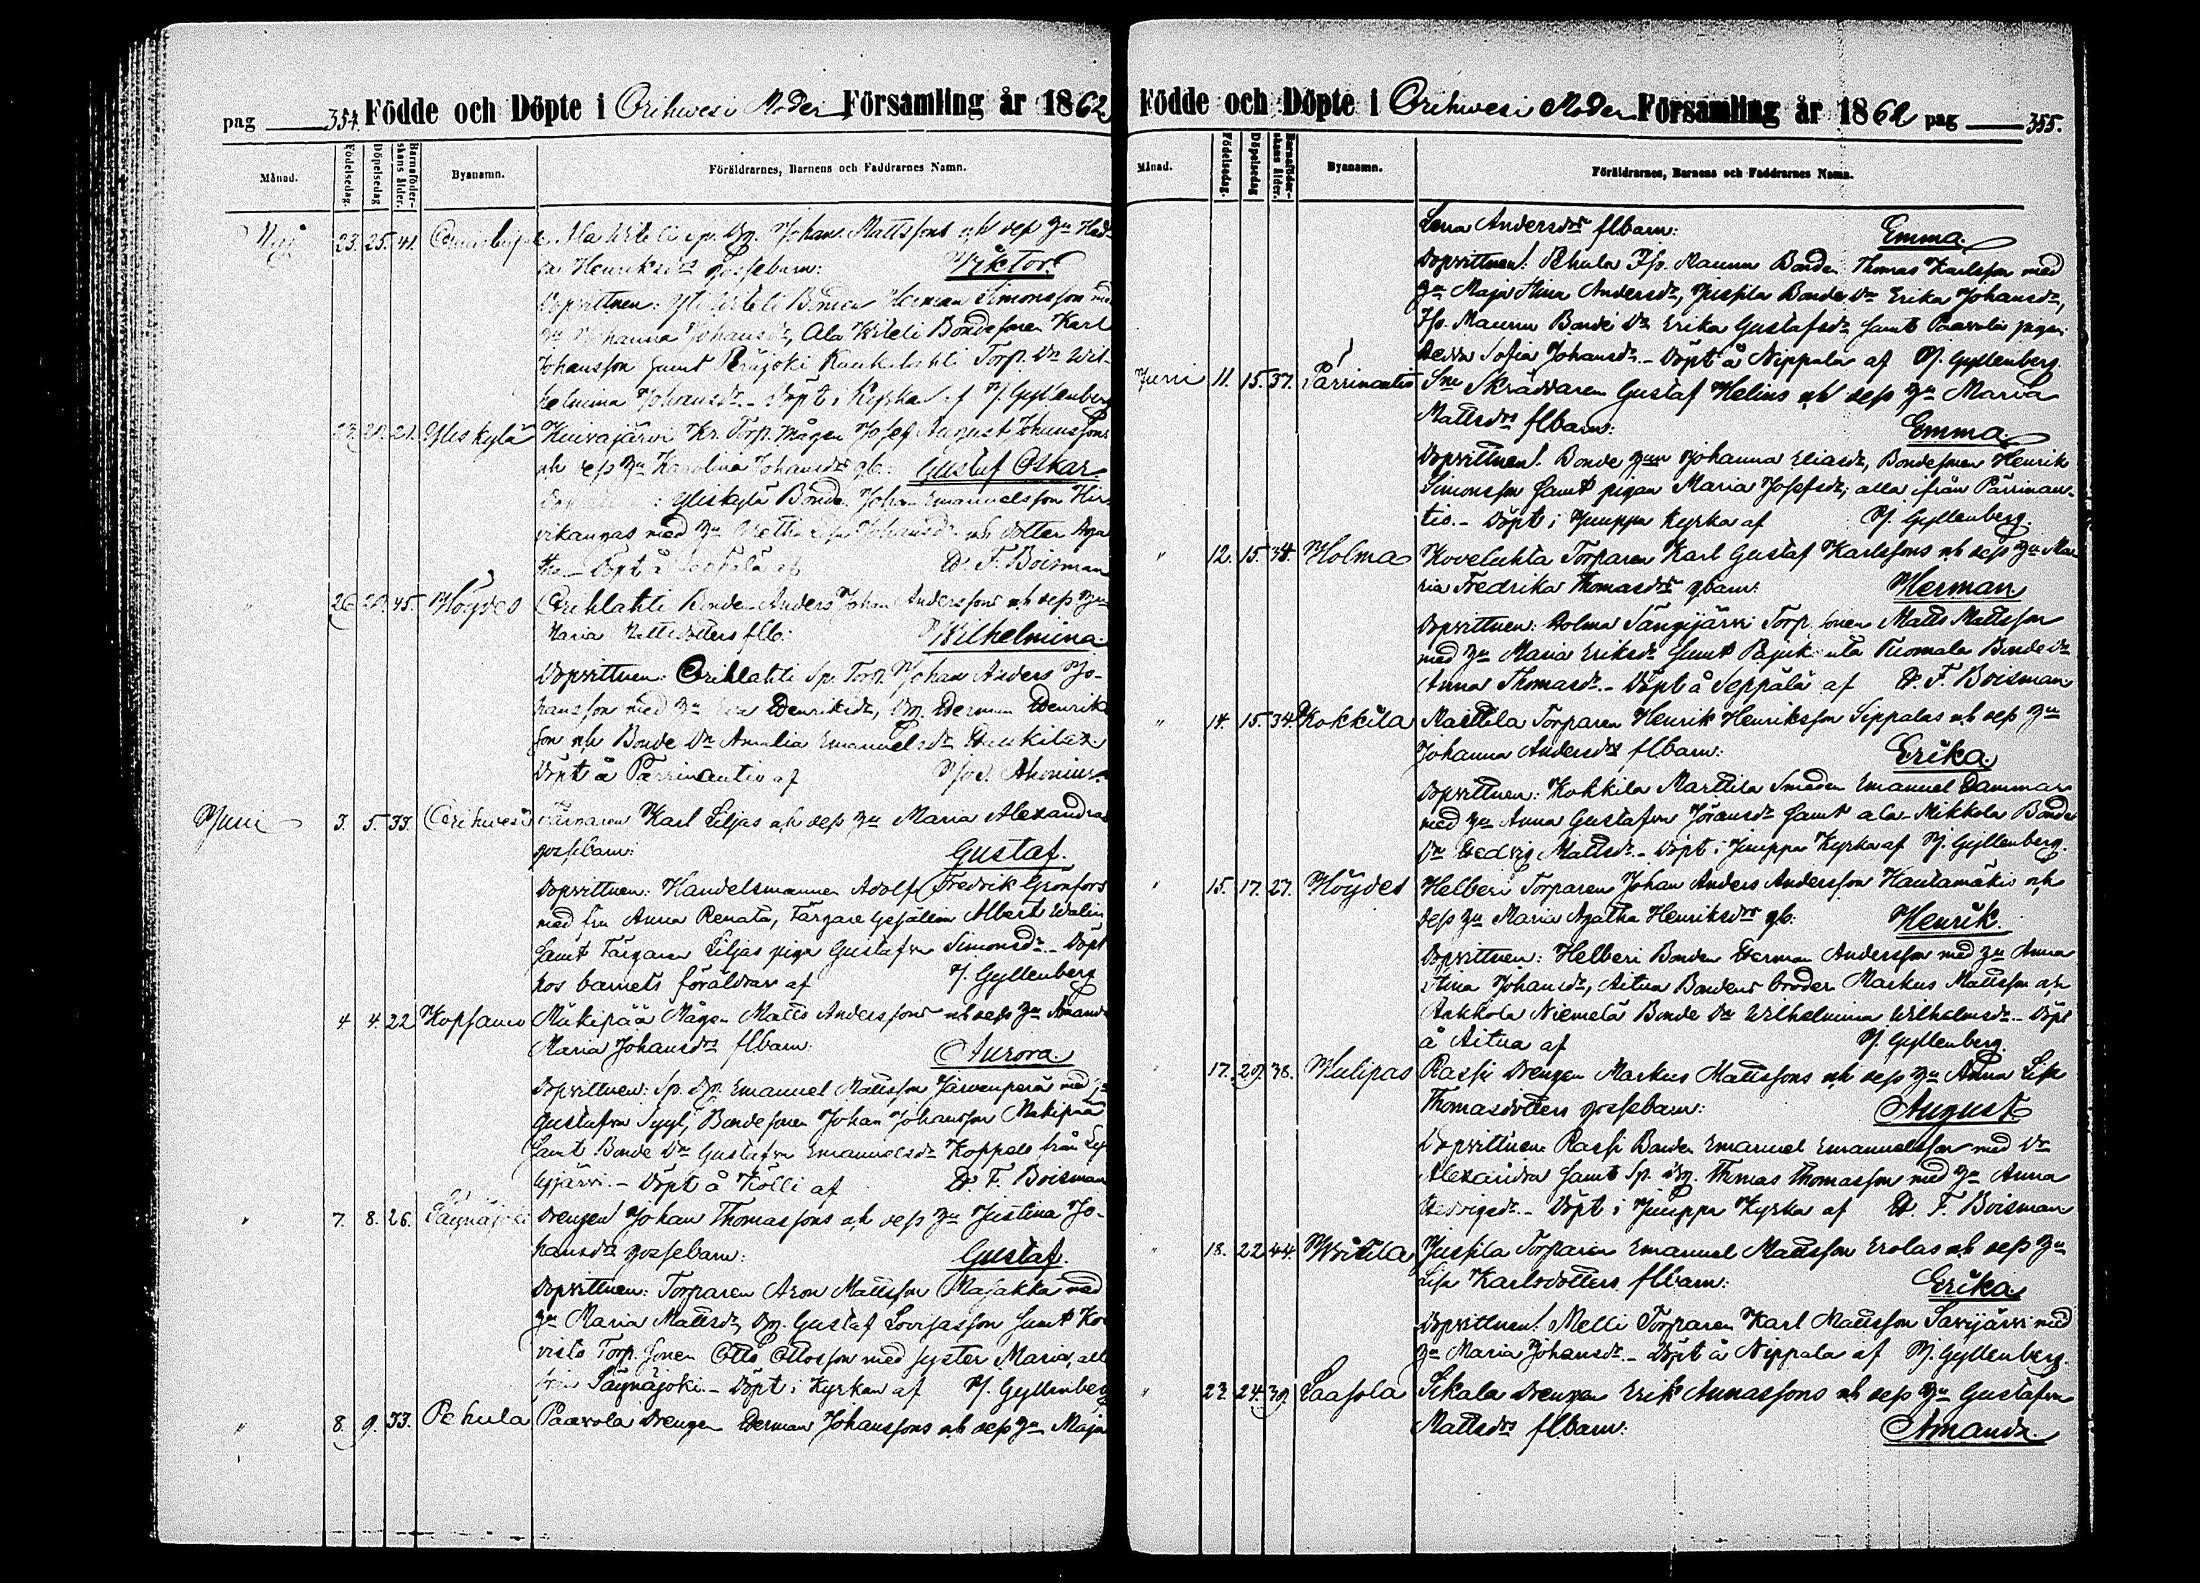 pag 354. Födde och Döpte i Orihwesi Moder Församling år 1862
Månad. Födelsedag. Döpelsedag Barnaföderskans ålder. Byanamn. Föräldrarnes, Barnens och Faddrarnes Namn.
Maj 23. 25. 41. Ala Uiteli sp. Dg. Johan Mattssons och dess hu Hed-
da Henriksdrs gossebarn: Viktor.
Dopvittnen: Yli Uiteli Bonden Herman Simonsson med
hu Johanna Johansdr, Ala Uiteli Bondesonen Karl
Johansson samt Torp. Dr Wil-
helmina Johansdr. Döpt i Kyrka af J. Gyllenberg
21. Yliskylä Kuivajärvi Kr. Torp. mågen Josef August Johanssons
och dess hu Karolina Johansdrs gb: Gustaf Oskar.
: Yliskylä Bonde Johan Emanuelsson Hir-
vikangas med hu Johansdr och dotter Aga
tha. Döpt å Seppälä af D. F. Boisman
26. 28. 45. Höydes Orihlahti Bonden Anders Johan Anderssons och dess hu
Maria dotters flb: Wilhelmina.
Dopvittnen: Orihlahti Sp. Torp. Johan Anders Jo-
hansson med hu Henriksdr, Dg. Herman Henriks
son och Bonde Dr Amalia Emanuelsdr
Döpt å Pärrinantio af Ahonius.
Juni 3. 5. 33. Orihwesi Färgaren Karl Liljas och dess hu Maria Alexandras
gossebarn: Gustaf.
Dopvittnen: Handelsmannen Adolf Fredrik Grönfors
med fru Anna Renata, Färgare Gesällen Albert Walin
samt Färgaren Liljas piga Gustafva Simonsdr. Döpt
hos barnets föräldrar af J. Gyllenberg
4. 4. 22 Kopsamo Mäkipää Mågen Matts Anderssons och dess hu Amanda
Maria Johansdrs flbarn: Aurora.
Dopvittnen: Sp. Dg. Emanuel Mattsson Järvenperä med hu
Gustafva Bondesonen Johan Johansson Mäkipää
samt Bonde Dr Gustafva Emanuelsdr Koppelo från
järvi. Döpt å Kölli af D. F. Boisman
" 7. 8. 26. Säynäjoki Drengen Johan Thomassons och dess hu Justina Jo-
hansdrs gossebarn: Gustaf.
Dopvittnen: Torparen Aron Mattsson Majakka med
hu Maria Mattsdr, Dg. Gustaf Lovisasson samt Ko
visto Torp. sonen Otto Ottosson med syster Maria, alla
från Säynäjoki. Döpt i Kyrkan af J. Gyllenberg
" 8. 9. 33. Pehula Paavola Drengen Herman Johanssons och dess hu Maja
Födde och Döpte i Orihwesi Moder Församling år 1862 pag 355.
Månad. Födelsedag. Döpelsedag Barnaföderskans ålder. Byanamn. Föräldrarnes, Barnens och Faddrarnes Namn.
Lena Andersdrs flbarn: Emma.
Dopvittnen: Pehula Iso Maunu Bonden Thomas Karlsson med
hu Maja Stina Andersdr, Jussila Bonde Dr Erika Johansdr,
Iso Maunu Bonde Dr Erika Gustafsdr samt Paavola pigan
Hedda Sofia Johansdr. Döpt å Nippala af J. Gyllenberg.
Juni 11. 15. 37. Pärrinantio Sne Skräddaren Gustaf Helins och dess hu Maria
Mattsdrs flbarn: Emma.
Dopvittnen: Bonde hun Johanna Eliasdr, Bondesonen Henrik
Simonsson samt pigan Maria Josefsdr; alla ifrån Pärrinan-
tio. Döpt i Juuppa kyrka af J. Gyllenberg.
" 12. 15. 34. Holma Kovelahta Torparen Karl Gustaf Karlssons och dess hu Ma-
ria Fredrika Thomasdrs gbarn: Herman.
Dopvittnen: Holma Tängijärvi Torp. sonen Matts Mattsson
med hu Maria Eriksdr samt Tuomala Bonde Dr
Anna Thomasdr. Döpt å Seppälä af D. F. Boisman
" 14. 15. 34. Kokkila Marttila Torparen Henrik Henriksson Seppälas och dess hu
Johanna Andersdrs flbarn: Erika.
Dopvittnen: Kokkila Marttila Smeden Emanuel Dammar
med hu Anna Gustafva Jöransdr samt ala-Mikkola Bonde
Dr Hedvig Mattsdr. Döpt i Juuppa Kyrka af J. Gyllenberg.
" 15. 17. 27. Höydes Helberi Torparen Johan Anders Andersson Hautamäkis och
dess hu Maria Agatha Henriksdrs gb. Henrik.
Dopvittnen: Helberi Bonden Herman Andersson med hu Anna
Stina Johansdr, Aitua Bondens broder Markus Mattsson och
Niemelä Bonde Dr Wilhelmina Wilhelmsdr. Döpt
å Aitua af J. Gyllenberg.
17. 29. 38. Hulipas Rassi Drengen Markus Mattssons och dess hu Anna Lisa
Thomasdotters gossebarn: August
Dopvittnen Rassi Bonden Emanuel Emanuelsson med Dr
Alexandra samt Sp. Dg. Thomas Thomasson med hu Anna
Hedvigsdr. Döpt i Juuppa Kyrka af D. F. Boisman
" 18. 22. 44. Wäkkilä Jussila Torparen Emanuel Mattsson Erolas och dess hu
Lisa Karlsdotters flbarn: Erika.
Dopvittnen: Melli Torparen Karl Mattsson Savijärvi med
hu Maria Johansdr. Döpt å Nippala af J. Gyllenberg.
" 23. 24. 39. Saasola Sikala Drengen Erik Annassons och dess hu Gustafva
Mattsdrs flbarn: Amanda.